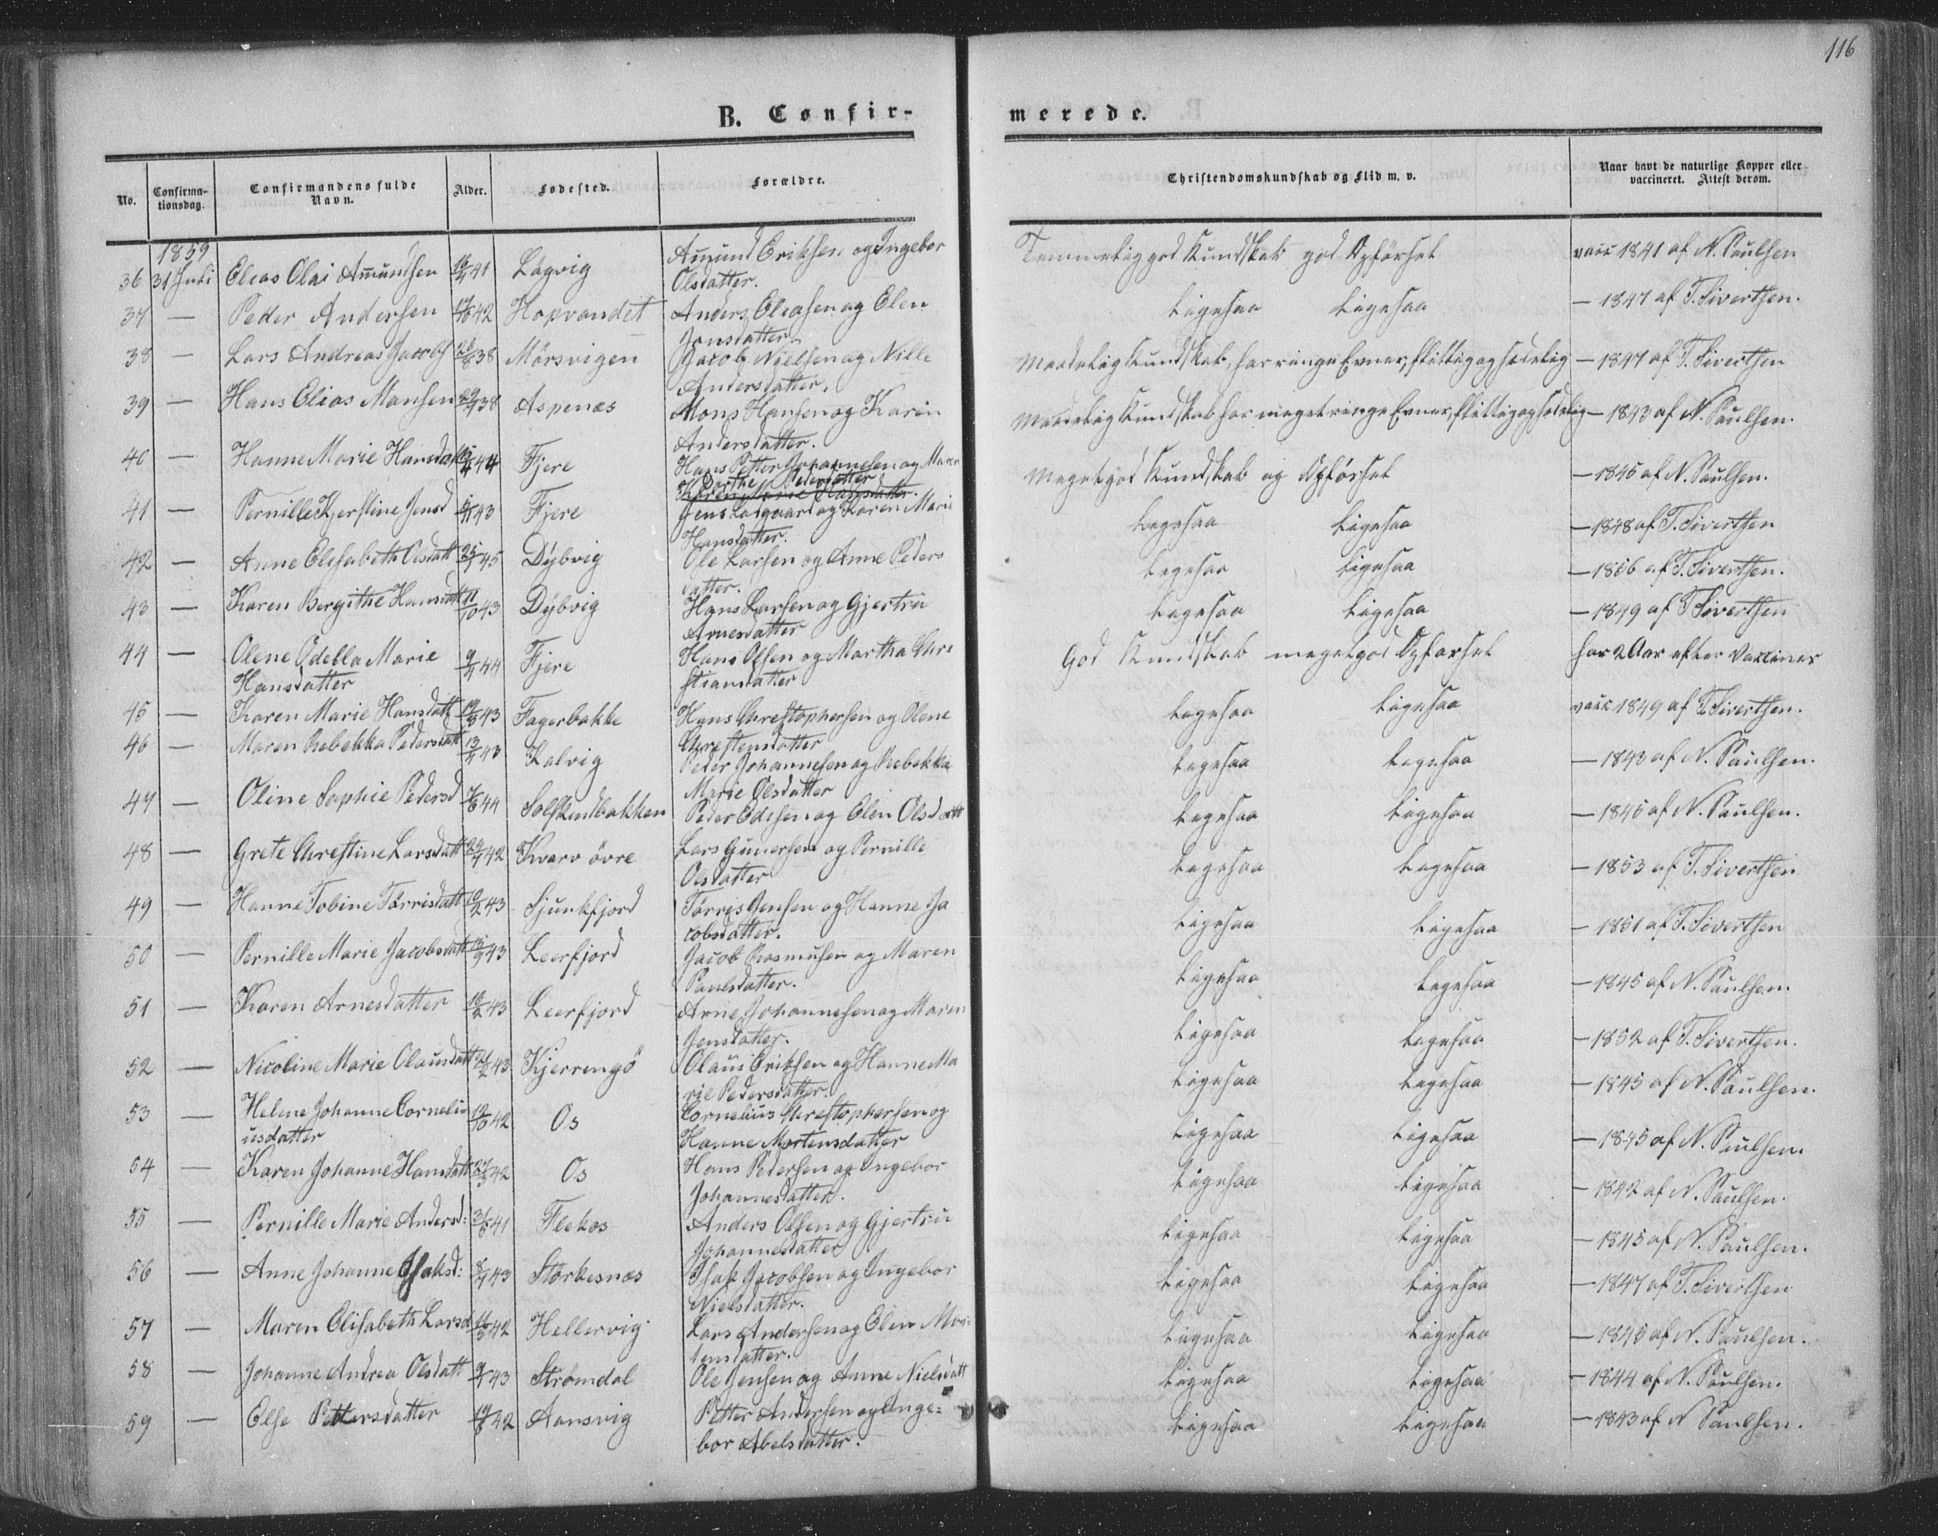 116
B. Confirmerede.
No. Confirmationsdag. Confirmandens fulde Navn. Alder. Fødested. Forældre. Christendomskundskab og Flid m. v. Naar havt de naturlige Kopper eller vaccineret. Attest derom.
1859
36 31 Juli Elias Olai Amundsen 41 Lagvig Amund Eriksen og Ingebor Olsdatter. Temmelig god Kundskab god Opførsel vacc 1841 af N. Paulsen
37 — Peder Andersen 42 Hopvandet Anders Eliasen og Elen Jonsdatter. Ligesaa Ligesaa — 1847 af T. Sivertsen.
38 — Lars Andreas Jacobs 38 Mørsvigen Jacob Nielsen og Nille Andersdatter. Maadelig Kundskab, har ringe Evner, flittig og sædelig — 1847 af T. Sivertsen
39 — Hans Elias Monsen 38 Aspenæs Mons Hansen og Karin Andersdatter. Maadelig Kundskab har meget ringe Evner, flittig og sædelig — 1843 af N. Paulsen.
40 — Hanne Marie Hansdatt 44 Fjere Hans Petter Johannesen og Maren Dorthe Pedersdatter Meget god Kundskab og Opførsel — 1845 af N. Paulsen.
41 — Pernille Kjerstine Jensd 43 Fjere Jens Losgaard og Karen Marie Hansdatter. Ligesaa Ligesaa — 1848 af T. Sivertsen
42 — Anne Elisabeth Olsdatt 45 Dybvig Ole Larsen og Anne Pedersdatter. Ligesaa Ligesaa — 1856 af T. Sivertsen.
43 — Karen Bergithe Hansdatt 43 Dybvig Hans Larsen og Gjertru Arnesdatter Ligesaa Ligesaa — 1849 af T. Sivertsen
44 — Olene Odella Marie Hansdatter 9/4 44 Fjere Hans Olsen og Martha Christiansdatter God Kundskab meget god Opførsel har 2 Aar efter Vacciner
45 — Karen Marie Hansdatt 43 Fagerbakke Hans Christophersen og Olene Christensdatter Ligesaa Ligesaa vacc 1849 af T. Sivertsen.
46 — Maren Rebekka Pedersdatt 43 Kalvig Peder Johannesen og Rebekka Marie Olsdatter Ligesaa Ligesaa — 1843 af N. Paulsen.
47 — Oline Sophie Pedersd 44 Solskindbakken Peder Edisen og Elen Olsdatt Ligesaa Ligesaa — 1845 af N. Paulsen.
48 — Grete Christine Larsdatt 42 Kvarv øvre Lars Gunersen og Pernille Olsdatter Ligesaa Ligesaa — 1853 af T. Sivertsen
49 — Hanne Tobine Tørrisdatt 43 Sjunkfjord Tørris Jensen og Hanne Jacobsdatter. Ligesaa Ligesaa — 1851 af T. Sivertsen
50 — Pernille Marie Jacobsdatt 43 Leerfjord Jacob Rasmusen og Maren Paulsdatter. Ligesaa Ligesaa — 1845 af N. Paulsen.
51 — Karen Arnesdatter 43 Leerfjord Arne Johannesen og Maren Jensdatter. Ligesaa Ligesaa — 1852 af T. Sivertsen.
52 — Nicoline Marie Olausdatt 43 Kjerringø Olaus Eriksen og Hanne Marie Pedersdatter. Ligesaa Ligesaa — 1845 af N. Paulsen.
53 — Helene Johanne Corneliusdatter 42 Os Cornelius Christophersen og Hanne Mortensdatter Ligesaa Ligesaa — 1845 af N. Paulsen.
54 — Karen Johanne Hansdatt 42 Os Hans Pedersen og Ingebor Johannesdatter. Ligesaa Ligesaa — 1842 af N. Paulsen.
55 — Pernille Marie Andersd: 41 Flekos Anders Olsen og Gjertru Johannesdatter Ligesaa Ligesaa — 1845 af N. Paulsen.
56 — Anne Johanne Isaksd: 43 Storkesnæs Isak Jacobsen og Ingebor Nielsdatter. Ligesaa Ligesaa — 1847 af T. Sivertsen
57 — Maren Elisabeth Larsd 42 Hellervig Lars Andersen og Elen Mortensdatter. Ligesaa Ligesaa — 1845 af N. Paulsen.
58 — Johanne Andrea Olsdatt 43 Strømdal Ole Jensen og Anne Nielsdatt Ligesaa Ligesaa — 1844 af N. Paulsen.
59 — Else Pettersdatter 42 Aansvig Petter Andersen og Ingebor Abelsdatter. Ligesaa Ligesaa — 1843 af N Paulsen.